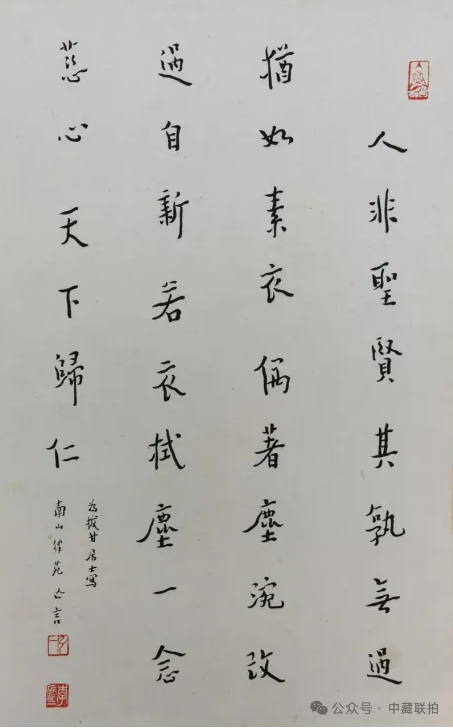 人非聖賢其孰無過
猶如素衣偶著塵涴改
過自新若衣拭塵一念
慈心天下歸仁
為拔甘居士寫
南山律苑亡言
公众号 · 中藏联拍